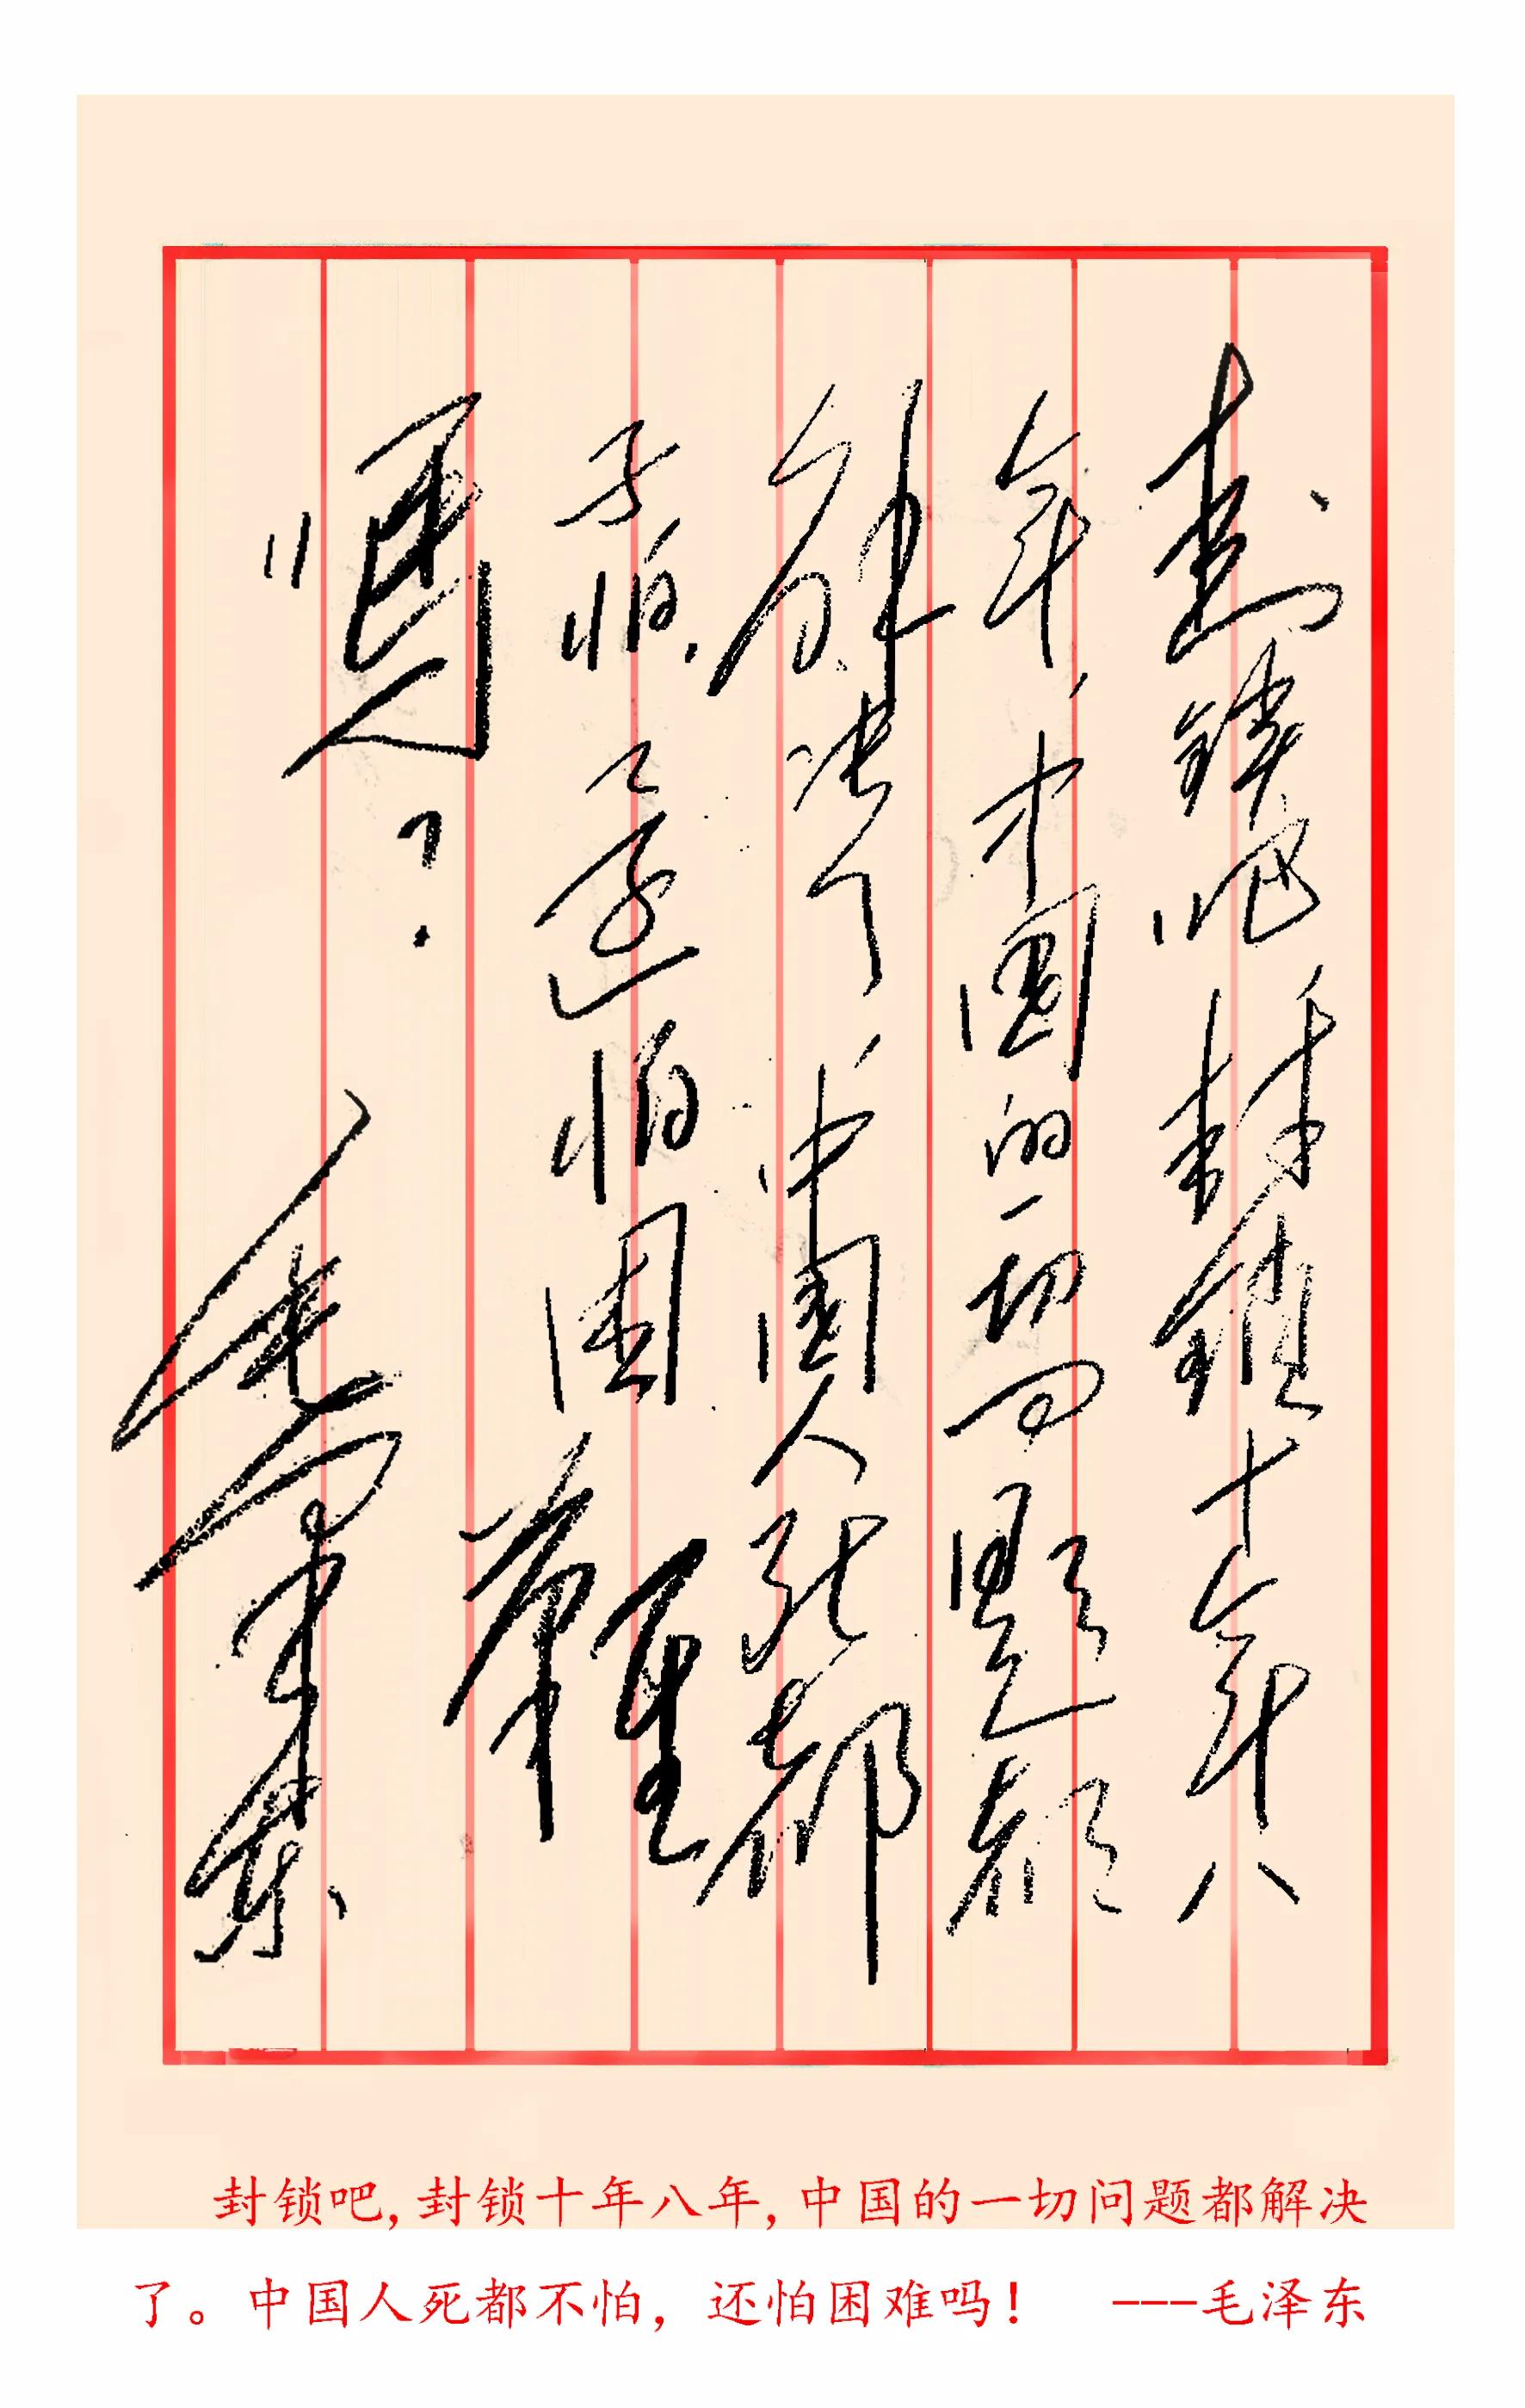 封锁吧封锁十年八
年，中国的一切问题都
解决了，中国人死都
不怕，还怕困難
嗎？
毛泽东
封锁吧,封锁十年八年,中国的一切问题都解决
了。中国人死都不怕，还怕困难吗！ ---毛泽东